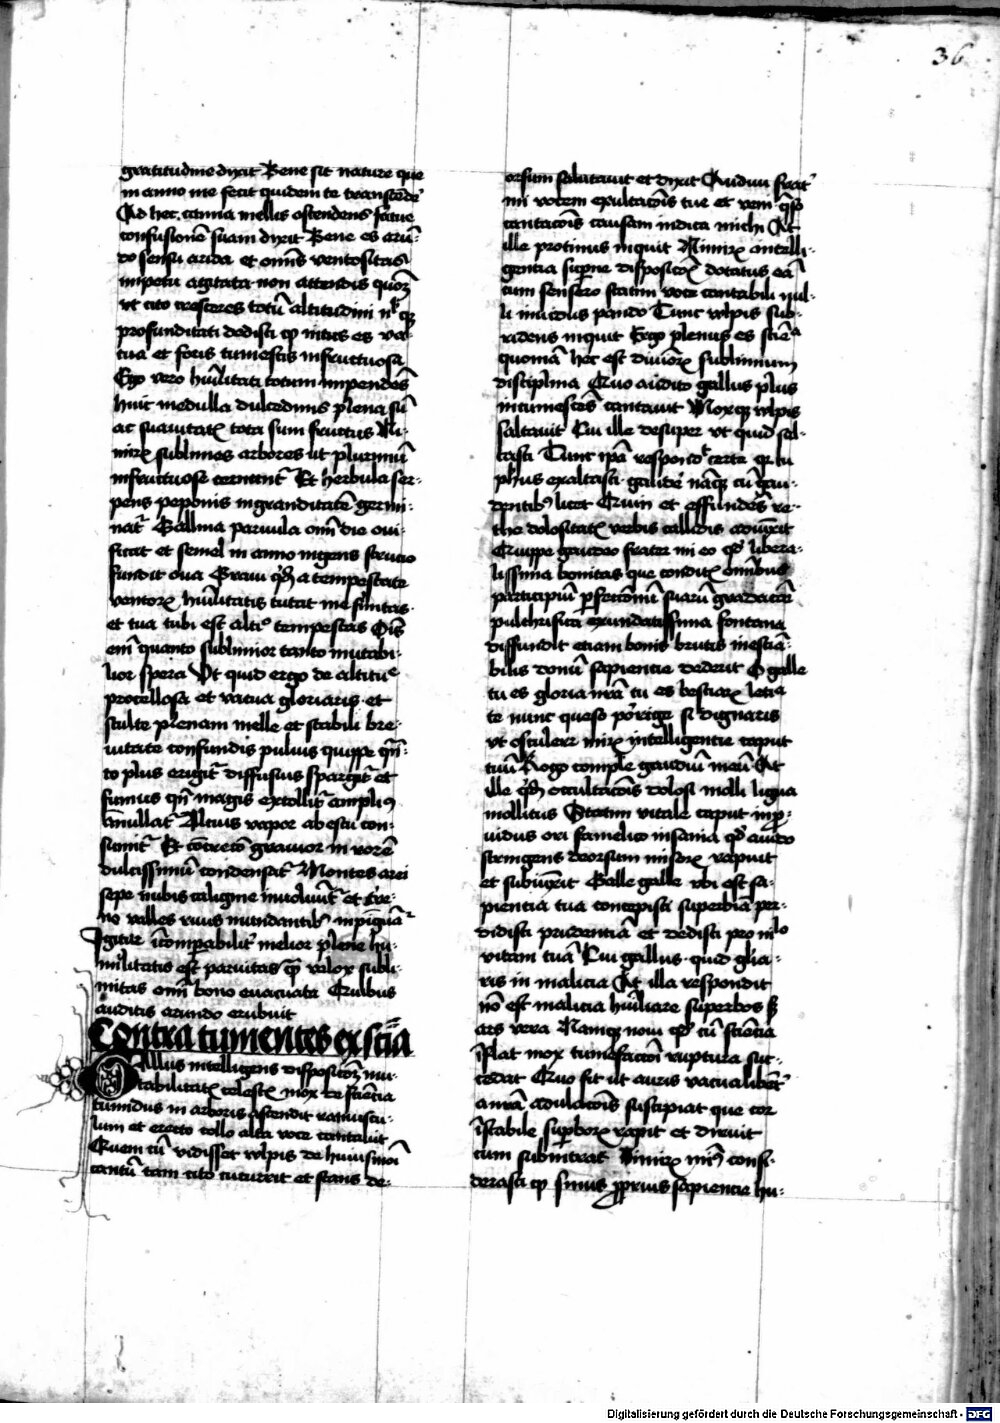 36
gratitudine dixit Bene sit nature que
in anno me fecit quidem te transcēdē
Ad hec canna mellis ostendens fatue
confusionē suam dixit Bene es arū-
do sensu arida et omīs ventositas
impetu agitata non attendis quoꝫ
vt cito cresceres totū altitudini
profunditati dedisti ꝙ intus es va-
cua et foris tumescis infructuosa
Ego vero hūilitati totum impendēs
huic medulla dulcedinis plena sū
ac suauitatꝫ tota sum fructus Ni-
mirꝫ sublimes arbores ut plurimū
infructuose cernunt᷑ Et herbula ser-
pens peponis in granditatē germi-
nat᷑ Gallina paruula omī die oui-
ficat et semel in anno ingens strucio
fundit oua Graui a tempestate
ventorꝫ hūilitatis tutat me silitas
et tua tubi est altiꝰ tempestas Oīs
enī quanto sublimior tanto mutabi-
lior spera Vt quid ergo de altitue
procellosa et vacua gloriaris et
stulte plenam melle et stabili bre-
uitate confundis puluis quippe qn̄-
to plus erigit᷑ diffusius spargit᷑ et
fumus qn̄ magis extollit᷑ ampliꝰ
ānullat᷑ Altius vapor ab estu con-
sumit᷑ Et cōcretō grauior in rorē
dulcissimū condensat᷑ Montes arei
sepe nubis caligine inuoluūt᷑ et tre-
no valles riuis inundantibꝰ inpīguāt᷑
Igitur īcomparabilit᷑ melior plene hu-
militatis est paruitas qm̄ velox subli-
mitas omī bono euacuata Quibus
auditis arundo erubuit
Contra tumentes ex scīa
Gallus intelligens dispositoꝫ mu-
tabilitatꝫ celestꝫ mox de scīētia
tumidus in arboris ascendit ramuscu-
lum et erecto collo alta voce cantauit
Quem cū vidisset vlpis de huiusmoī
cantū tam cito cucurrit et stans de-
orsum salutauit et dixit Audiui frat᷑
mi vocem exultacōis tue et veni q̄so
cantacōis causam indica michi At
ille protinus inquit Nimirꝫ antelli-
gentia supne dispositoꝫ dotatus eā
cum sensero statim voce cantabili nul-
li inuidus pando Tunc vlpis sub-
ridens inquit Ergo plenus es sciēa
quoniā hec est diuiorꝫ sublimium
disciplina Quo audito gallus plus
intumescēs cantauit Moxqꝫ vlpis
saltauit Cui ille desuper vt quid sal-
tasti Tunc respond certe qꝛ tu
phūs exaltasti gaude nāqꝫ cū gau-
dentibꝰ licet Enim et effundēs re-
the dolositatꝫ verbis callidis adiūxit
Quippe gaudeo frater mi eo ꝙ libera-
lissima bonitas que conditꝫ omībus
participiū perfectionū suarū gradatim
pulchrifica exundatissima fontana
diffundit etiam bonis brutis inestiā-
bilis donū sapientie dederit O galle
tu es gloria nrā tu es bestiarꝫ leticia
te nunc queso pōrige si dignaris
vt osculerr mirꝫ intelligentie caput
tuū Rogo comple gaudiū meū At
ille occultacōis dolosi molli ligua
mollitus Statim vitale caput inpro-
uidus ori famelico insania ꝙ auido
stringens deorsum miserꝫ rapuit
et subiūxit Galle galle vbi est sa-
pientia tua concepisti superbiā per-
didisti prudentiā et dedisti pro nilo
vitam tuā Cui gallus quid glīa-
ris in malicia At illa respondit
nō est malicia hūiliare superbos
ars vera Namqꝫ noui ꝙ cū sciētia
īflat mox tumefactōi ruptura suc-
cedat Quo fit ut auris vacua libēt᷑
amrā adulacōis suscipiat que cor
īstabile superborꝫ rapit et diruit
cum subintrat Nimirꝫ consi-
derasti ꝙ simus proprius sapientie hu-
Digitalisierung gefördert durch die Deutsche Forschungsgemeinschaft - DFG